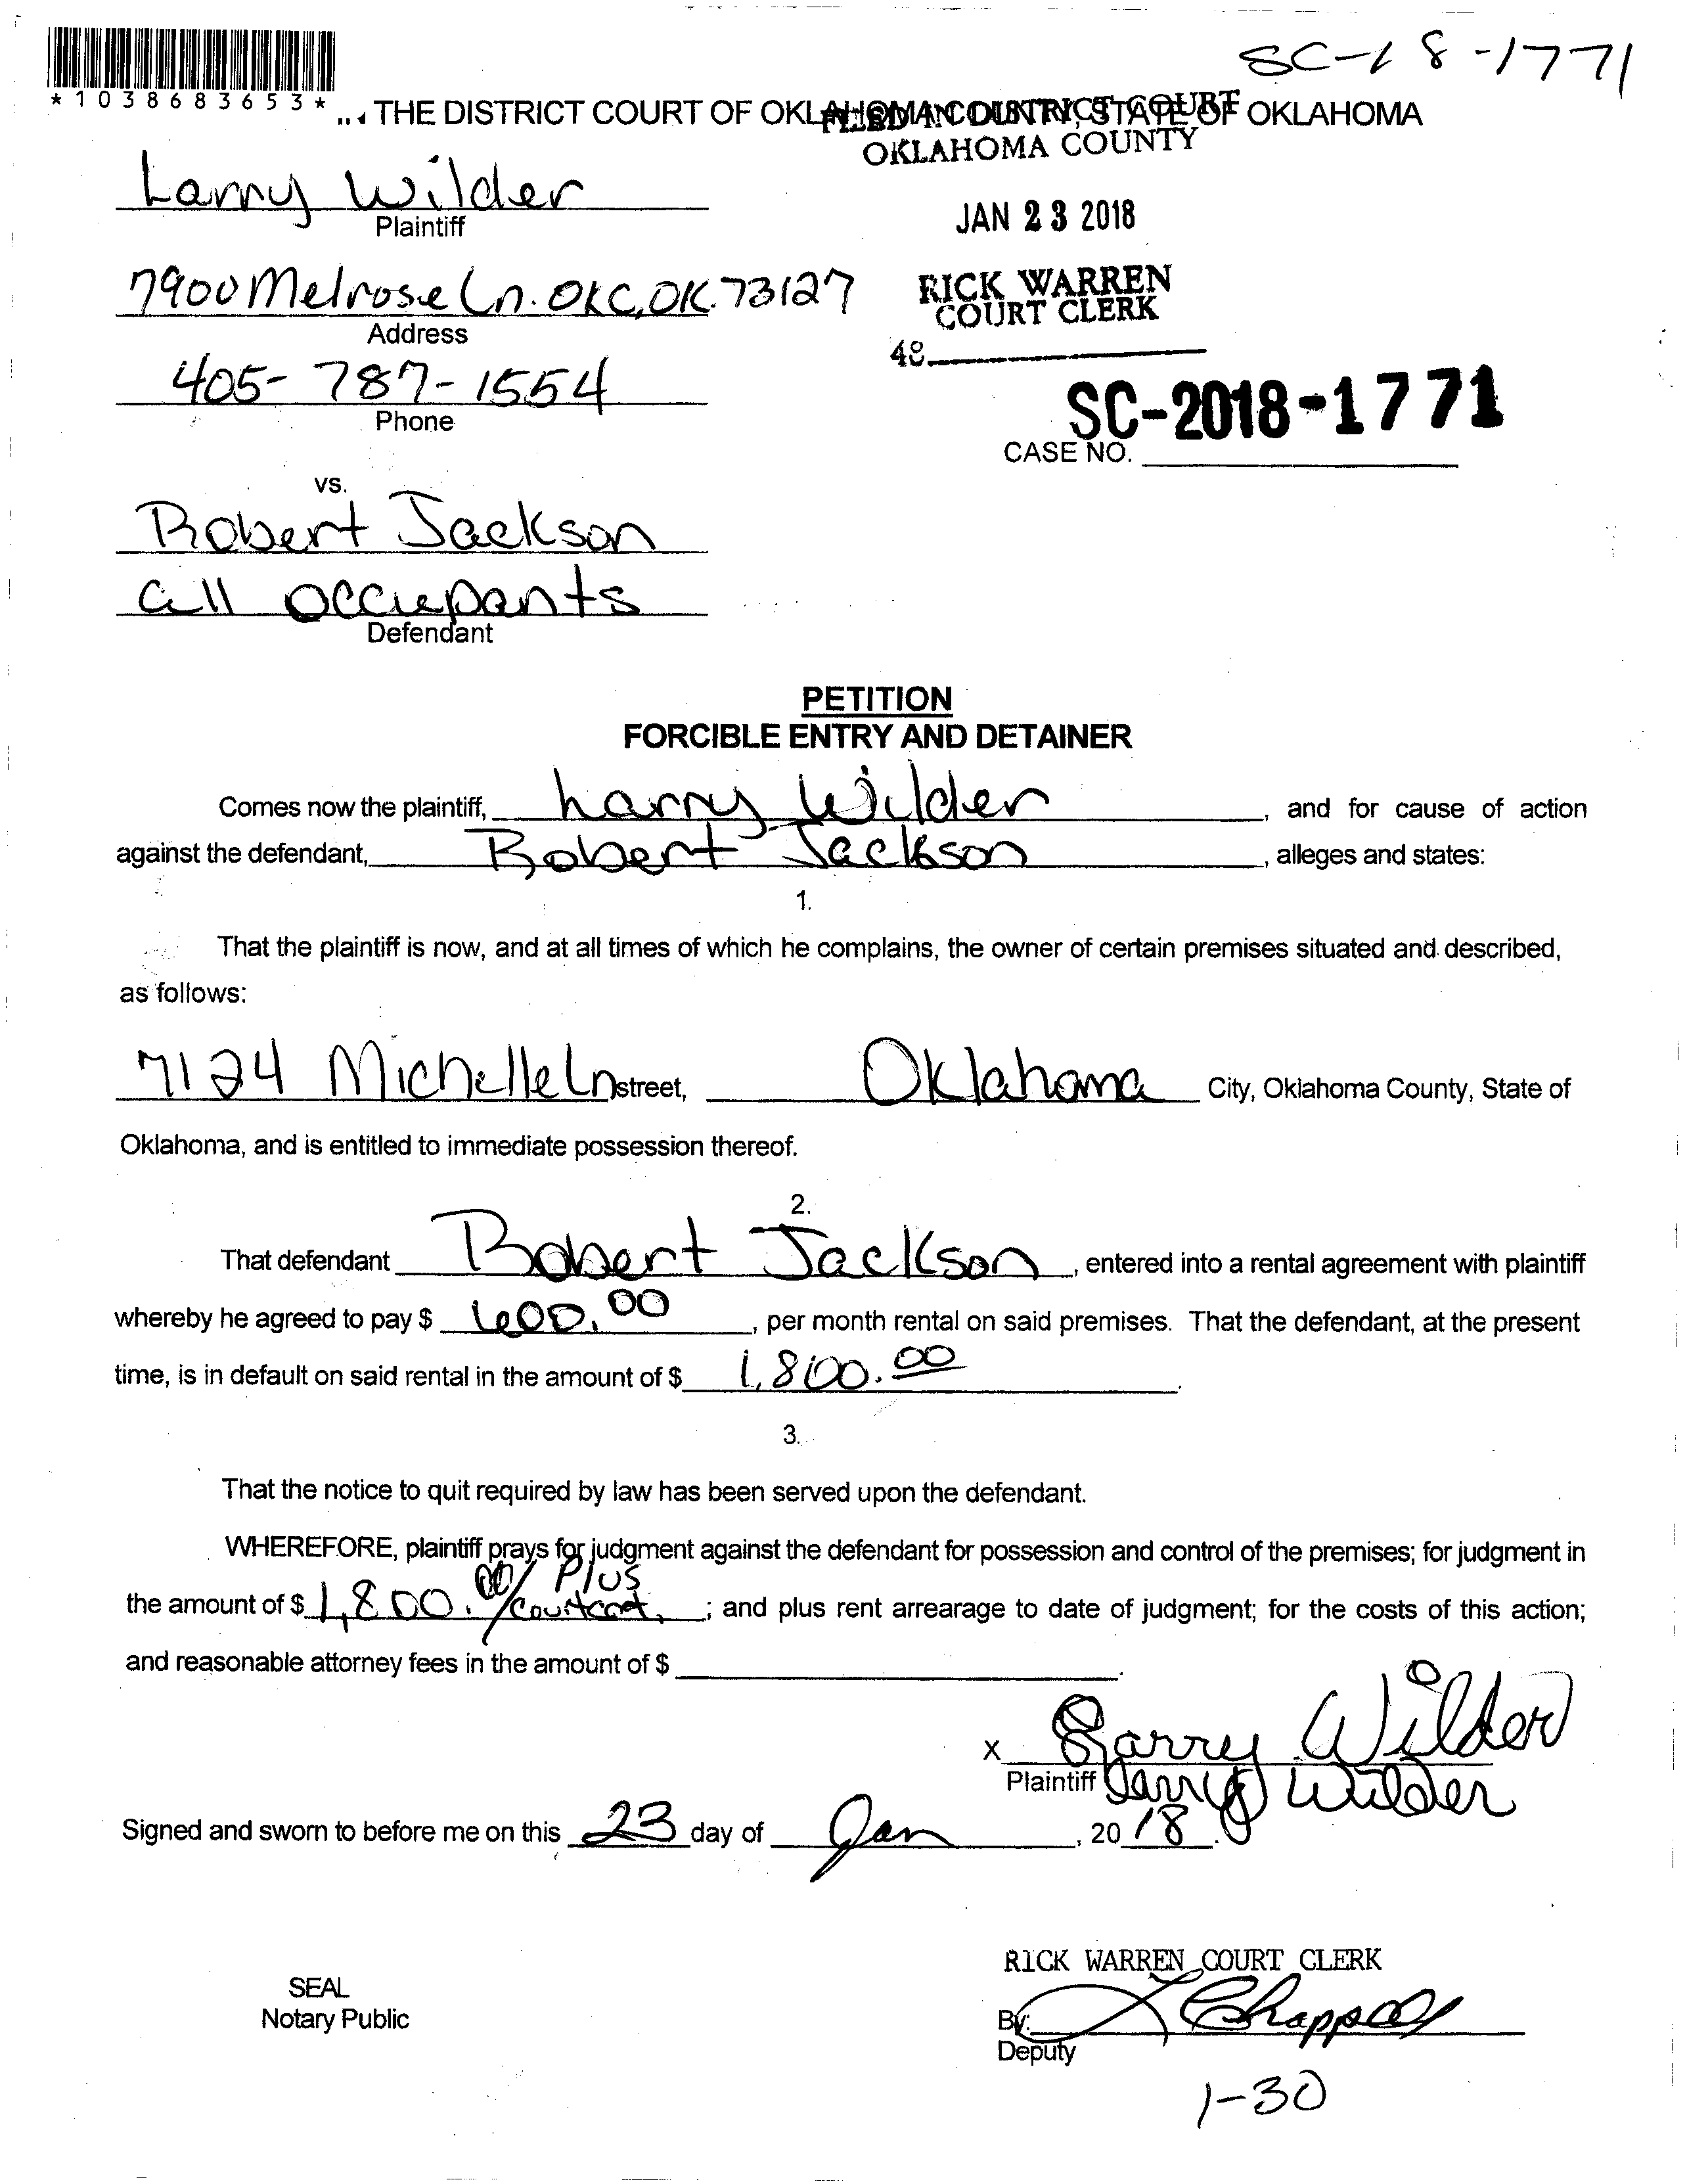 SC-18-1771
*1038683653*
THE DISTRICT COURT OF OKLAHOMA COUNTY, STATE OF OKLAHOMA
FILED IN DISTRICT COURT
OKLAHOMA COUNTY
Larry Wilder
Plaintiff
JAN 23 2018
7900 Melrose Ln. OKC, OK. 73127
Address
RICK WARREN
COURT CLERK
405-787-1554
Phone
48
SC-2018-1771
CASE NO.
vs.
Robert Jackson
all occupants
Defendant
PETITION
FORCIBLE ENTRY AND DETAINER
Comes now the plaintiff, Larry Wilder, and for cause of action
against the defendant, Robert Jackson, alleges and states:
1.
That the plaintiff is now, and at all times of which he complains, the owner of certain premises situated and described,
as follows:
7124 Michelle Ln street, Oklahoma City, Oklahoma County, State of
Oklahoma, and is entitled to immediate possession thereof.
2.
That defendant Robert Jackson, entered into a rental agreement with plaintiff
whereby he agreed to pay $ 600.00, per month rental on said premises. That the defendant, at the present
time, is in default on said rental in the amount of $ 1,800.00.
3.
That the notice to quit required by law has been served upon the defendant.
WHEREFORE, plaintiff prays for judgment against the defendant for possession and control of the premises; for judgment in
the amount of $ 1,800.00/ Plus court cost.; and plus rent arrearage to date of judgment; for the costs of this action;
and reasonable attorney fees in the amount of $ .
X Larry Wilder
Plaintiff Larry Wilder
Signed and sworn to before me on this 23 day of Jan, 2018.
RICK WARREN COURT CLERK
SEAL
Notary Public
By: Chappell
Deputy
1-30